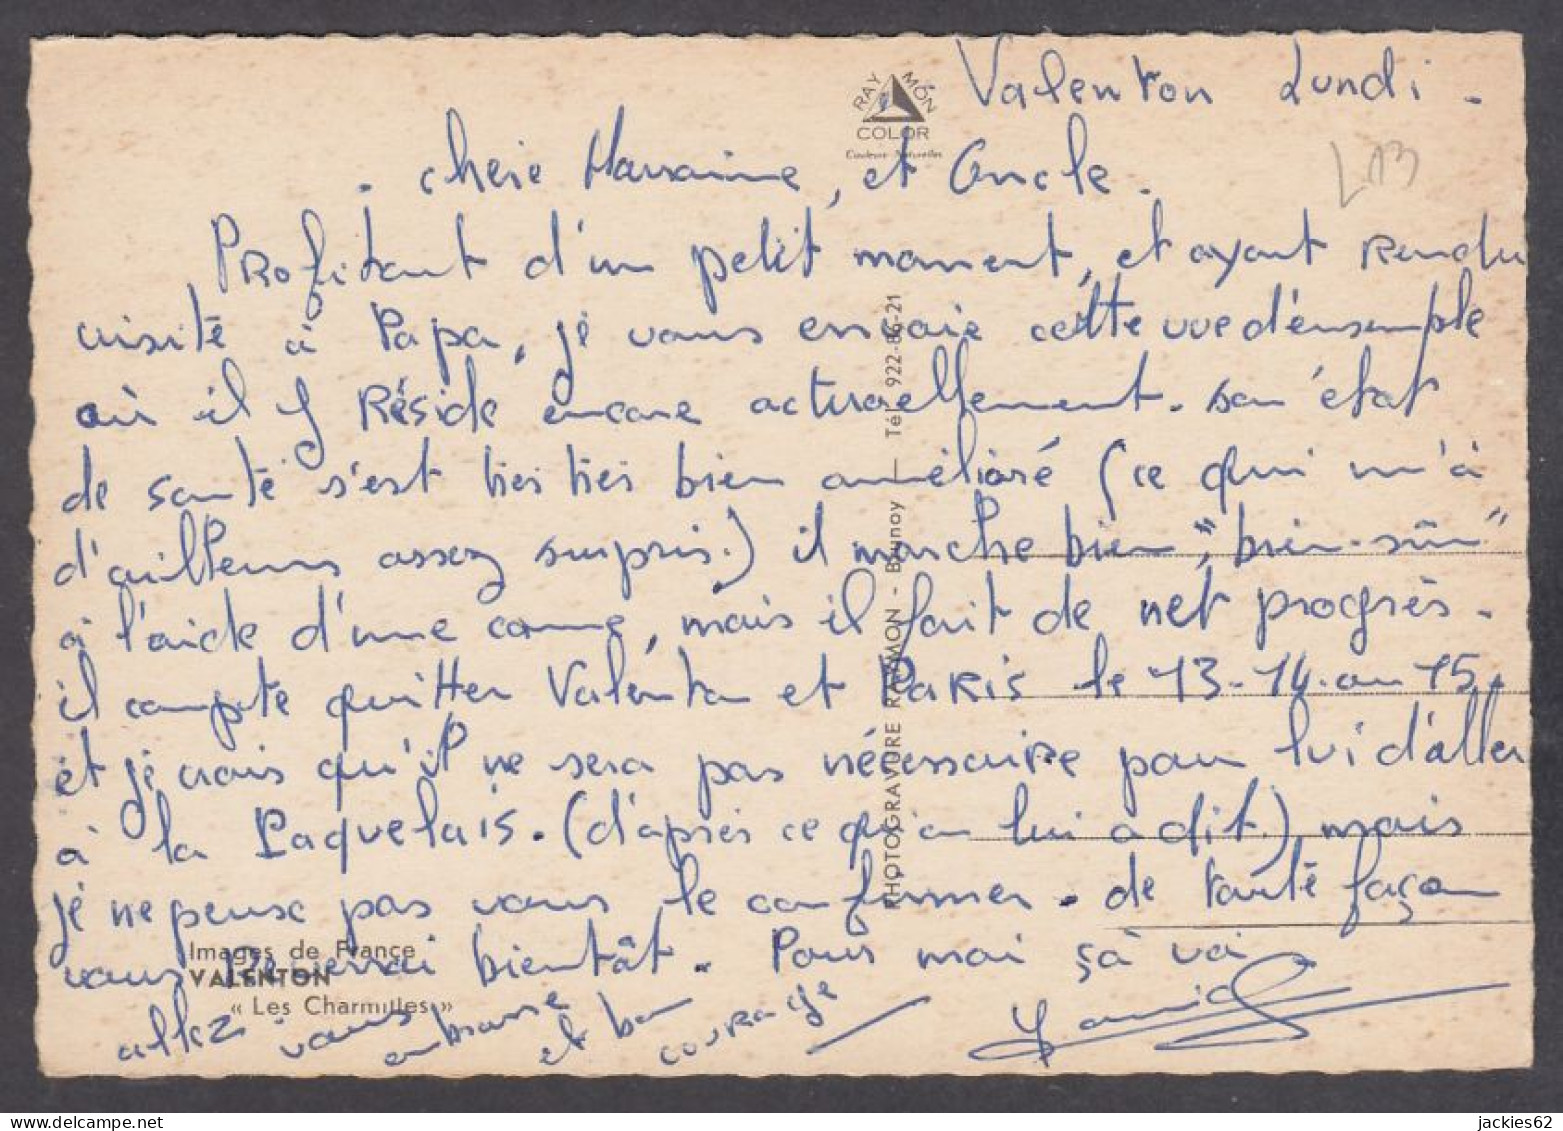 Valenton Lundi -
RAYMON
COLOR
Couleurs Naturelles
L13
- chère Marraine, et Oncle.
Profitant d'un petit moment, et ayant rendu
visité à Papa, je vous envoie cette vue d'énsemple
où il y Réside encore acturellement. son état
de santé s'est très très bien amélioré (ce qui m'à
d'ailleurs assez surpris.) il marche bien, "bien-sûr"
à l'aide d'une canne, mais il fait de net progrès.
il compte quitter Valénton et PaRis le 13-14-ou 15.
et je crois qu'il ne sera pas nécessaire pour lui d'aller
à la Paquelais. (d'après ce qu'on lui a dit.) mais
je ne peuse pas vous le confirmer. de touté façon
vous reverrai bientôt. Pour moi çà va
allez vous embrasse et bon courage
Yannick
Images de France
VALENTON
« Les Charmilles »
PHOTOGRAVURE RAYMON - Brunoy — Tél. 922-86-21
jackies62